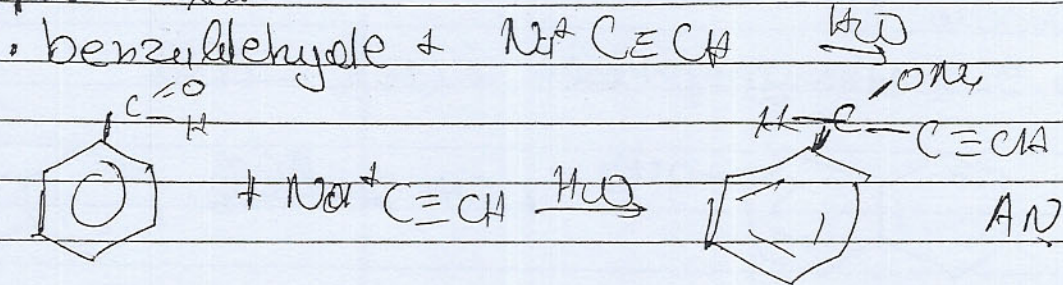 . benzaldehyde + Na+ C≡CH H2O
C=O
H
+ Na+ C≡CH H2O
ONa
H-C-C≡CH
AN